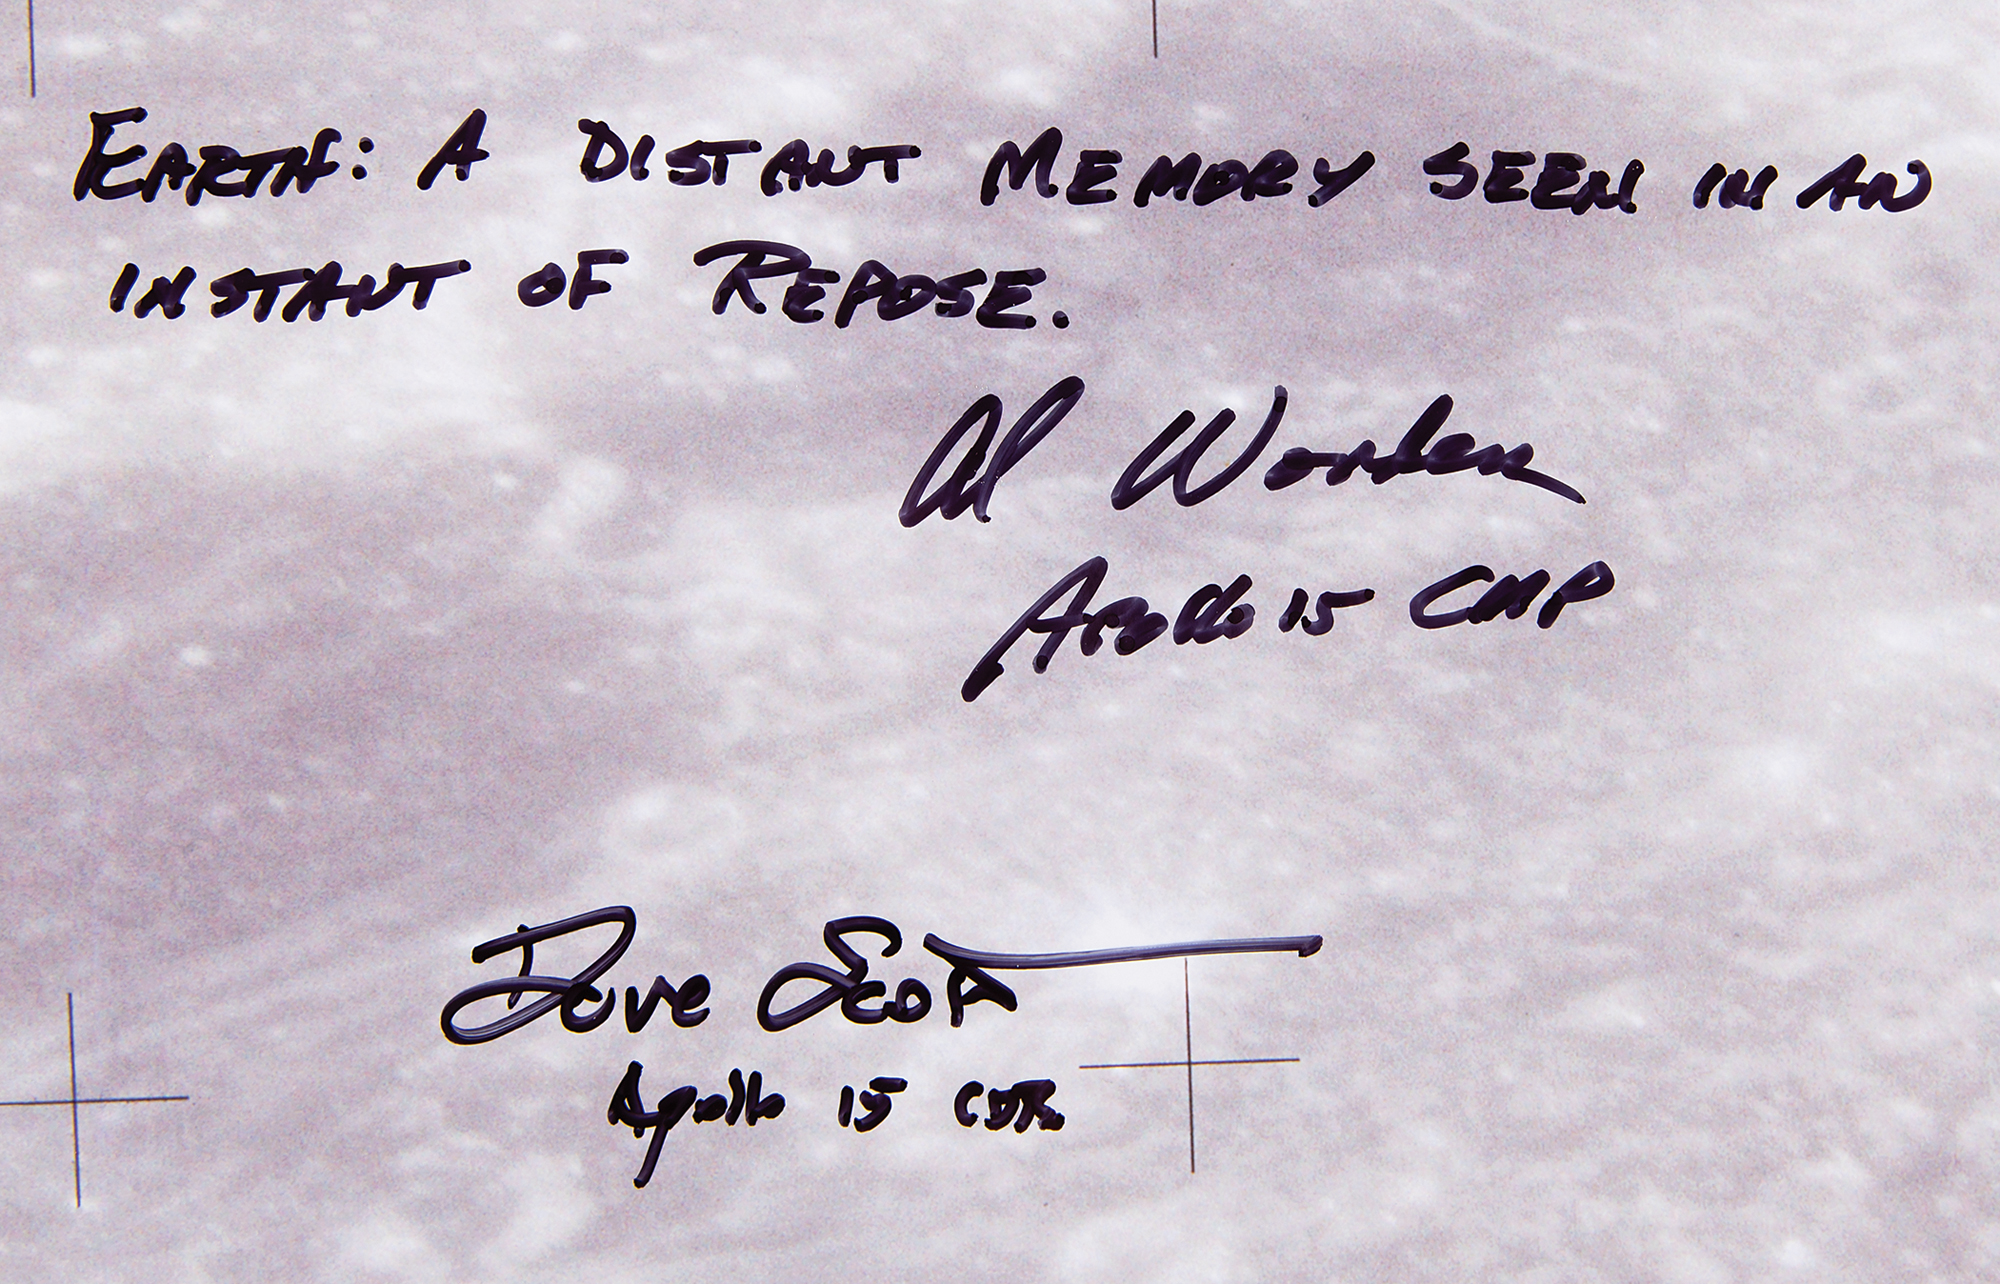 EARTH: A DISTANT MEMORY SEEN IN AN
INSTANT OF REPOSE.
Al Worden
Apollo 15 CMP
Dave Scott
Apollo 15 CDR